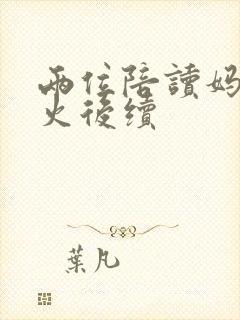 兩位陪讀媽
火後續
葉凡